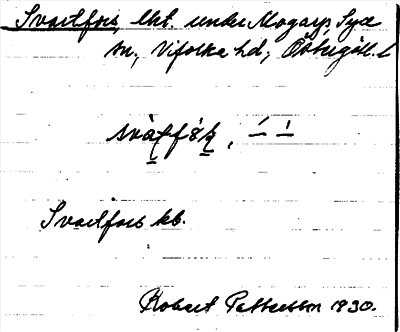 Svartfors, lht. under Mogarp, Sya
sn, Vifolka hd, Östergötl. l
Svartfors kb.
Robert Pettersson 1930.